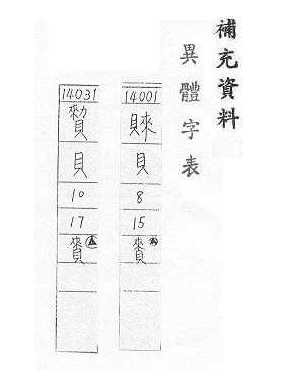 補充資料
異體字表
14001
貝
8
15
賚
14031
貝
10
17
賚